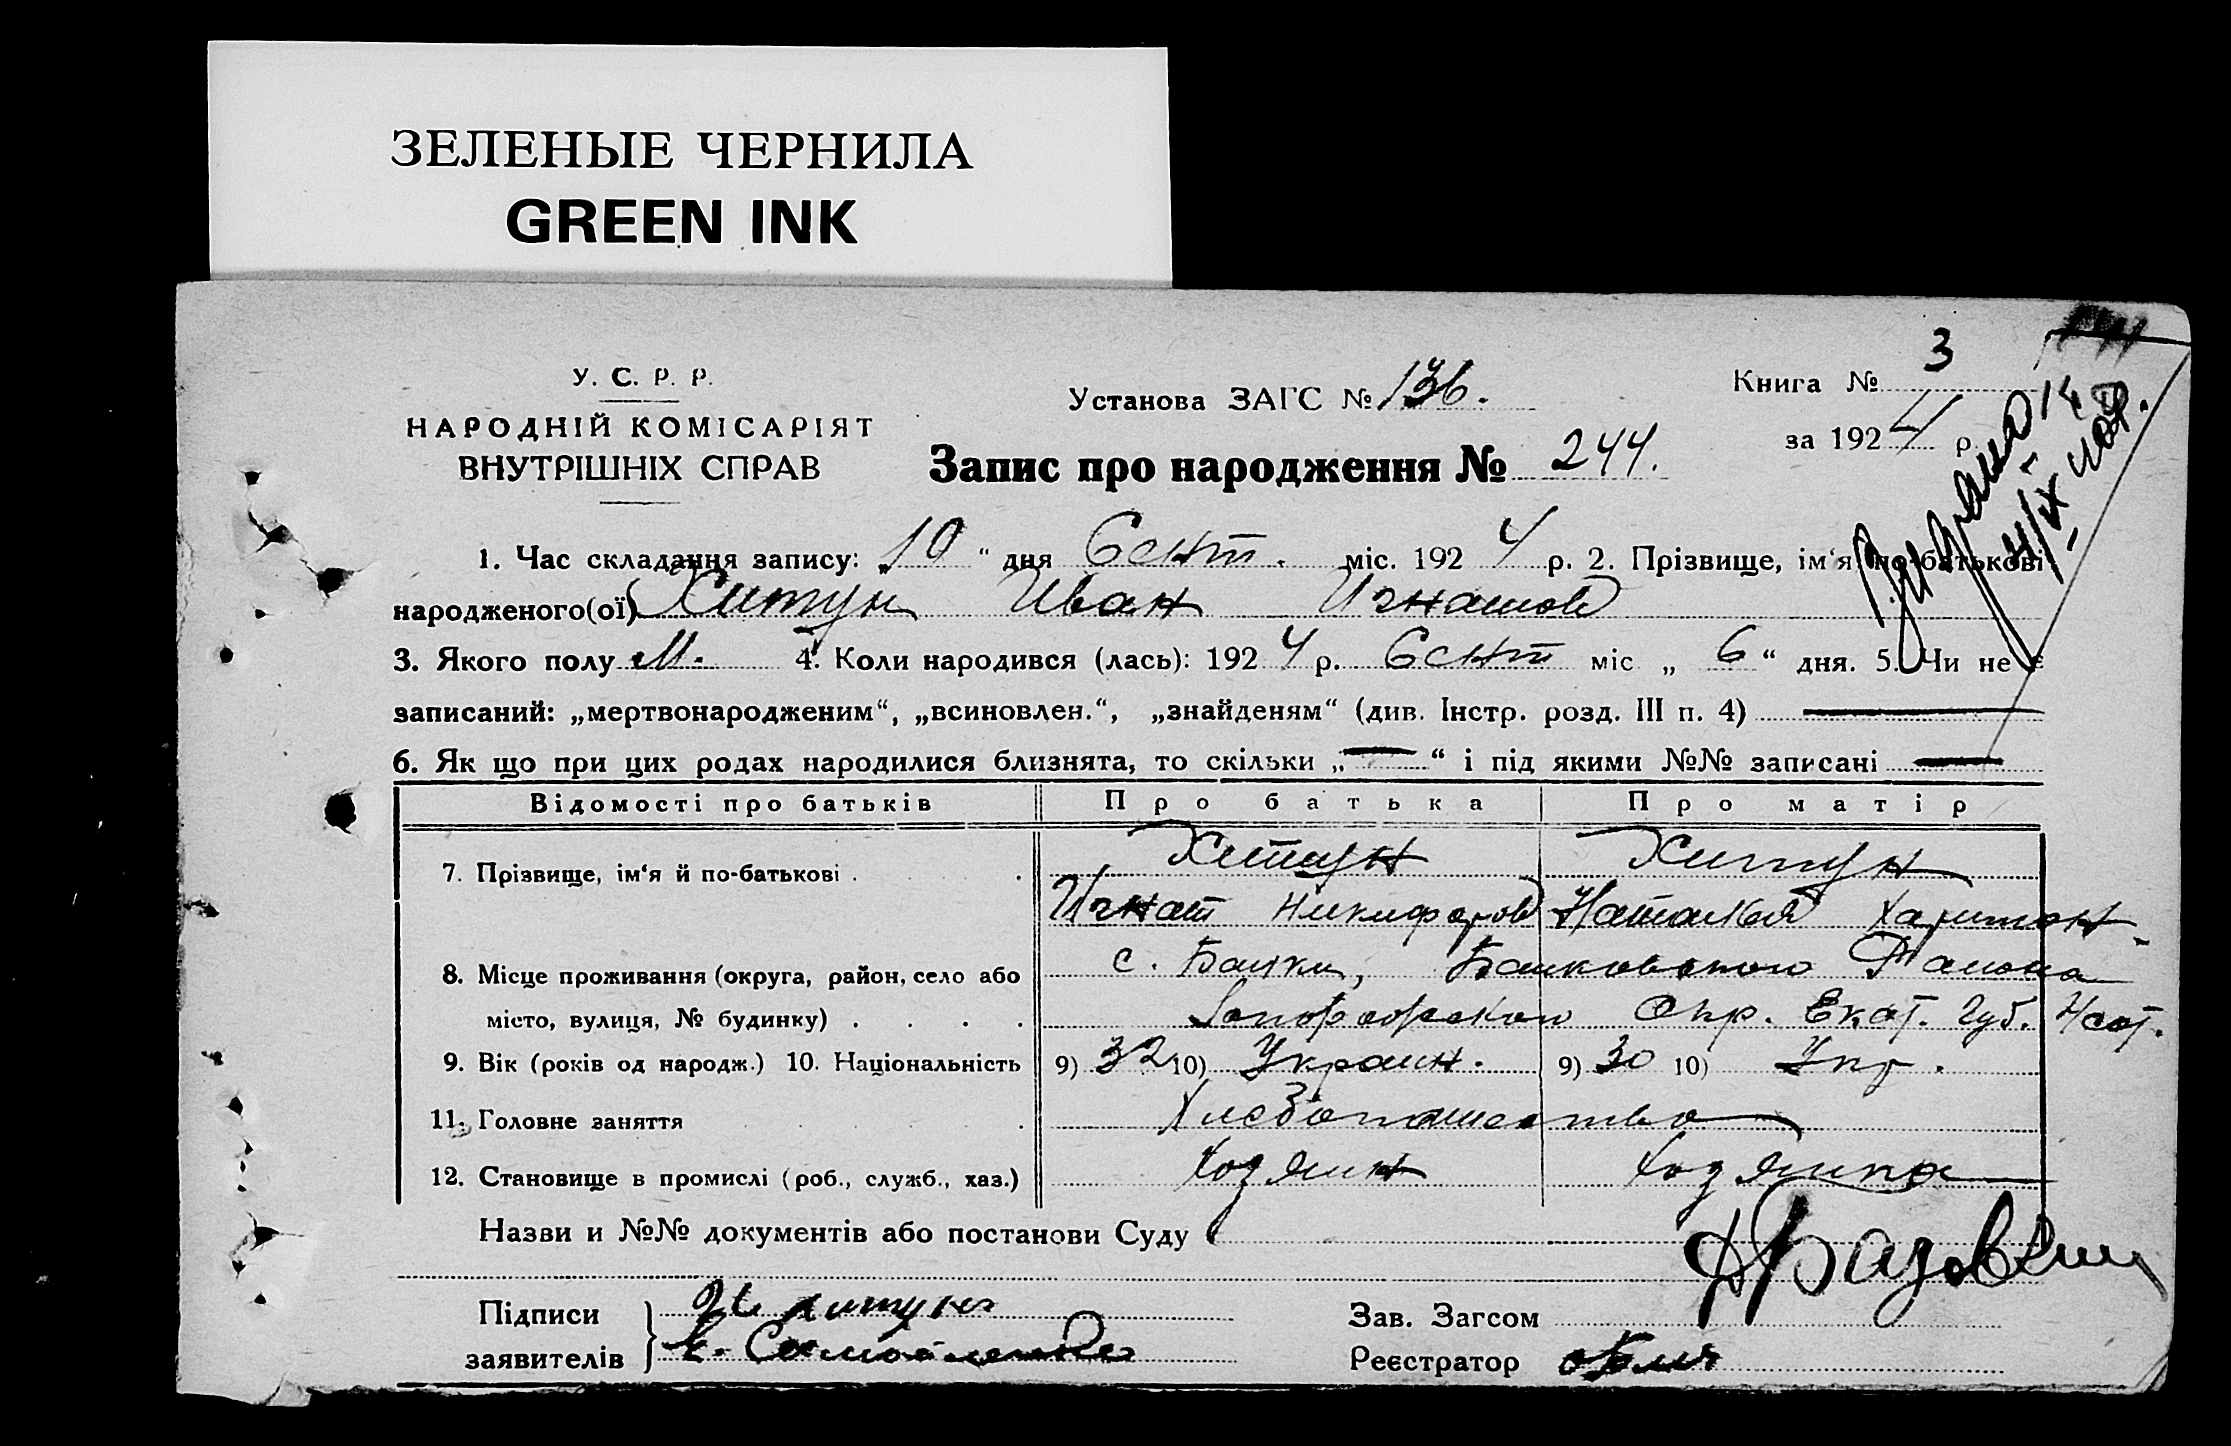 ЗЕЛЕНЫЕ ЧЕРНИЛА
GREEN INK
У. С. Р. Р.
НАРОДНІЙ КОМІСАРІЯТ
ВНУТРІШНІХ СПРАВ
Установа ЗАГС № 136.
Книга № 3
за 1924 р.
Запис про народження № 244.
1. Час складання запису: „10“ дня Сент. міс. 1924 р. 2. Прізвище, ім‘я по-батькові
народженого(ої) Хитун Иван Игнатов
3. Якого полу М. 4. Коли народився (лась): 1924 р. Сент міс „6“ дня. 5. Чи не є
записаний: „мертвонародженим“, „всиновлен.“, „знайденям“ (див. Інстр. розд. III п. 4) —
6. Як що при цих родах народилися близнята, то скільки „—“ і під якими №№ записані —
Відомості про батьків Про батька Про матір
7. Прізвище, ім‘я й по-батькові . . Хитун Хитун
Игнат Никифоров Наталья Харитон.
8. Місце проживання (округа, район, село або с. Балки, Балковского Района
місто, вулиця, № будинку) . . . . Запорожской Окр. Екат. Губ.
9. Вік (років од народж.) 10. Національність 9) 32 10) Украин. 9) 30 10) Укр.
11. Головне заняття . Хлебопашество
12. Становище в промислі (роб., служб., хаз.) Хозяин Хозяйка
Назви и №№ документів або постанови Суду
Підписи Хитун
заявителів Самойленко
Зав. Загсом
Реєстратор